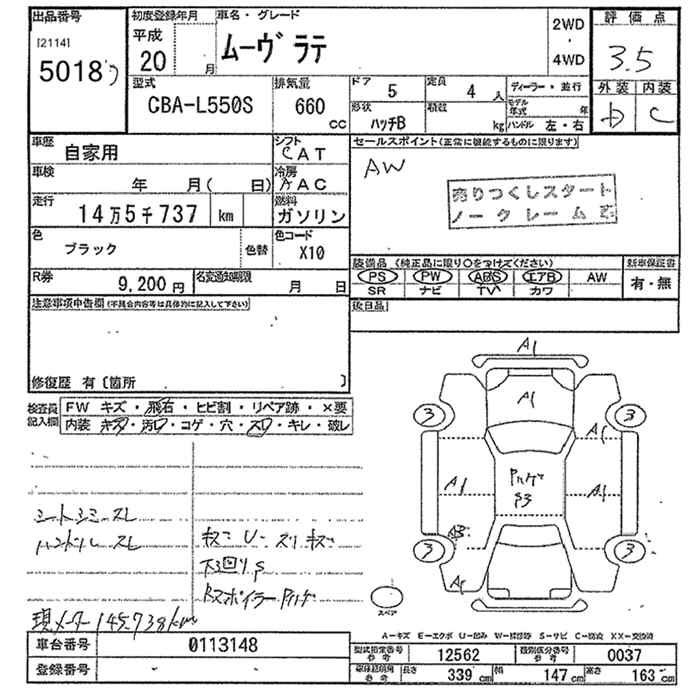 出品番号
[2114]
5018
初度登録年月
平成
20 月
車名・グレード
ムーヴ ラテ
2WD
・
4WD
評価点
3.5
外装 内装
D C
型式
CBA-L550S
排気量
660
CC
ドア
5
定員
4 人
形状
ハッチB
積数
kg
ディーラー・並行
モデル年式 年
ハンドル 左・右
車歴
自家用
シフト
CAT
車検
年 月( 日)
冷房
AAC
走行
14万5千737 km
燃料
ガソリン
色
ブラック
色替
色コード
X10
R券
9,200円
名変通知期限
月 日
セールスポイント(正常に機能するものに限ります)
AW
売りつくしスタート
ノークレーム
装備品 (純正品に限り○をつけてください)
PS PW ABS エアB AW
SR ナビ TV カワ
新車保証書
有・無
後日品
注意事項申告欄(不具合内容等は具体的に記入して下さい)
修復歴 有〔箇所 〕
検査員記入欄
FW キズ・飛石・ヒビ割・リペア跡・×要
内装 キズ・汚れ・コゲ・穴・スレ・キレ・破レ
シートシミ スレ
ハンドル スレ
キズ U スリキズ
下回りS
Rスポイラー
現メーター 145,738km
A1
A1
3
3
A1
A1
A1
3
3
スペア
A-キズ E-エクボ U-凹み W-補修跡 S-サビ C-腐食 XX-交換済
車台番号
0113148
登録番号
型式指定番号
参考
12562
類別区分番号
参考
0037
長さ
339 cm
幅
147 cm
高さ
163 cm